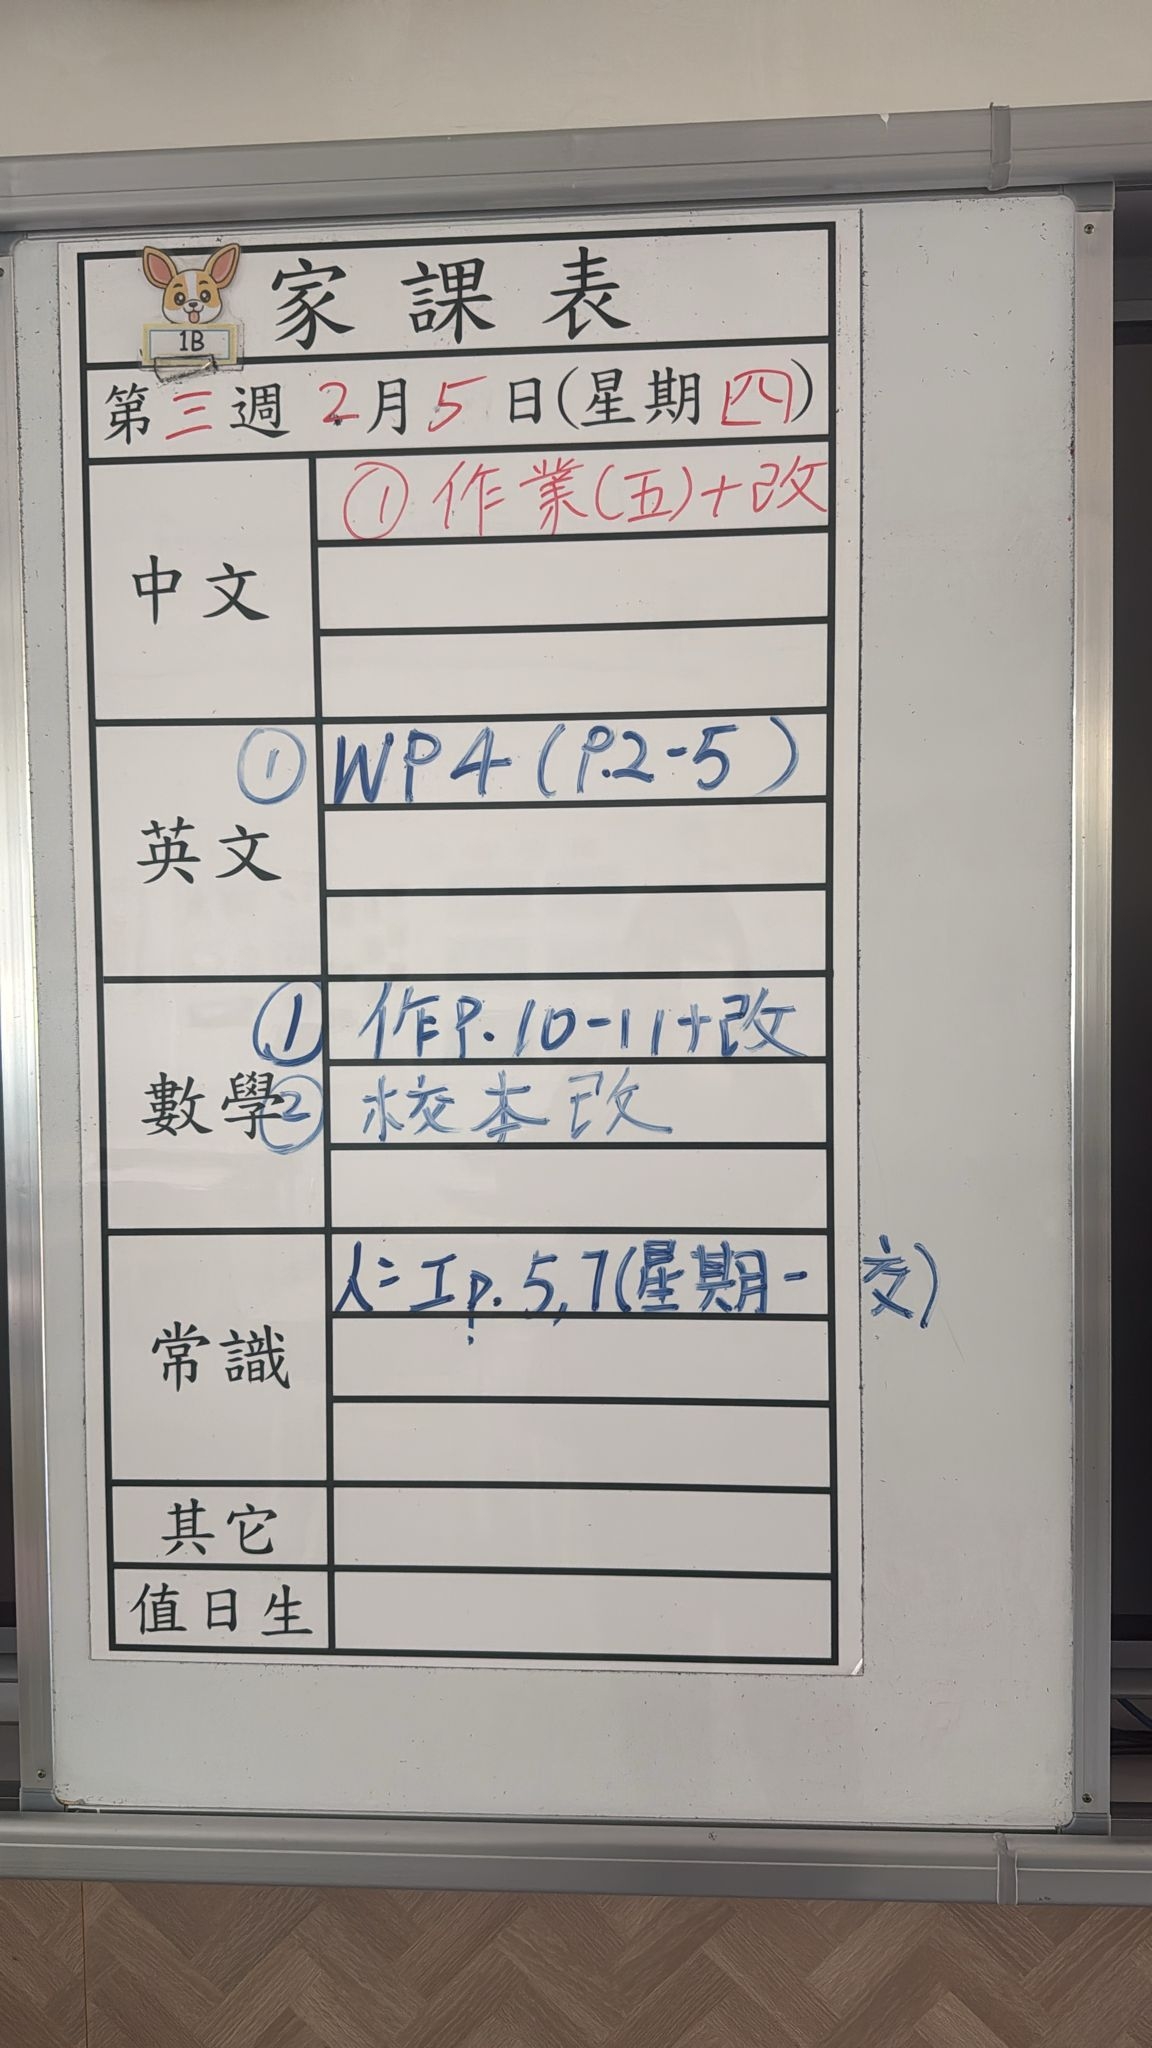 家課表
1B
第三週 2月5日(星期四)
中文
① 作業(五)+改
英文
① WP4 (P.2-5)
數學
① 作P.10-11+改
② 校本改
常識
工P.5,7(星期一交)
其它
值日生